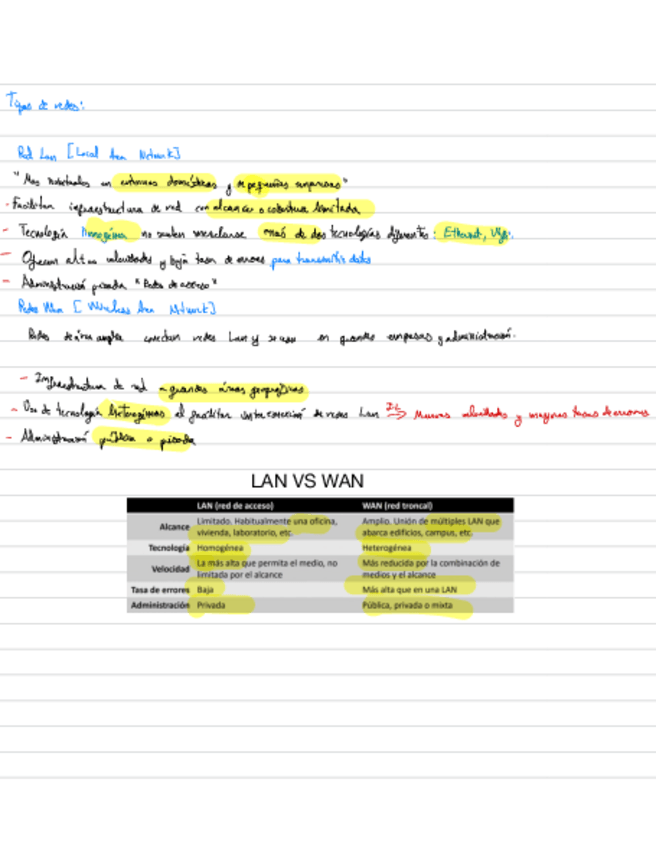 Tipos de redes:
Red Lan [Local Area Network]
"Mas habituales en entornos domésticos y de pequeñas empresas"
- Facilitan infraestructura de red con alcance o cobertura limitada
- Tecnología Homogénea no suelen mezclarse más de dos tecnologías diferentes: Ethernet, Wifi.
- Ofrecen altas velocidades y baja tasa de errores para transmitir datos
- Administración privada "Redes de acceso"
Redes Wan [Wireless Area Network]
Redes de área amplia conectan redes Lan y se usan en grandes empresas y administración.
- Infraestructura de red - grandes áreas geográficas
- Uso de tecnología heterogéneas al facilitar interconexión de redes Lan => Menores velocidades y mayores tasas de errores
- Administración pública o privada
LAN VS WAN
LAN (red de acceso) WAN (red troncal)
Alcance Limitado. Habitualmente una oficina, vivienda, laboratorio, etc. Amplio. Unión de múltiples LAN que abarca edificios, campus, etc.
Tecnología Homogénea Heterogénea
Velocidad La más alta que permita el medio, no limitada por el alcance Más reducida por la combinación de medios y el alcance
Tasa de errores Baja Más alta que en una LAN
Administración Privada Pública, privada o mixta